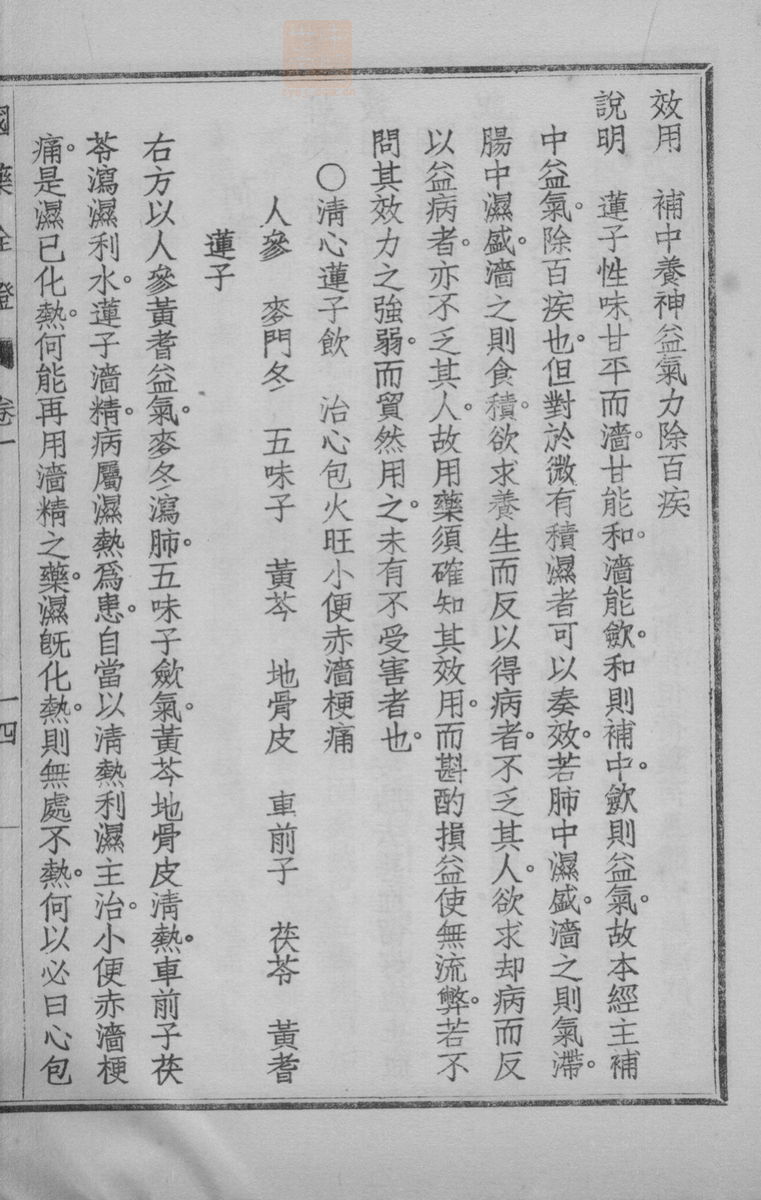 效用　補中養神益氣力除百疾
說明　蓮子性味甘平而濇。甘能和。濇能歛。和則補中。歛則益氣。故本經主補
中益氣。除百疾也。但對於微有積濕者可以奏效。若肺中濕盛。濇之則氣滯。
腸中濕盛。濇之則食積。欲求養生而反以得病者。不乏其人。欲求却病而反
以益病者。亦不乏其人。故用藥須確知其效用。而斟酌損益使無流弊。若不
問其效力之強弱。而貿然用之。未有不受害者也。
〇清心蓮子飲　治心包火旺小便赤濇梗痛
人參　麥門冬　五味子　黃芩　地骨皮　車前子　茯苓　黃耆
蓮子
右方以人參黃耆益氣。麥冬瀉肺。五味子歛氣。黃芩地骨皮清熱。車前子茯
苓瀉濕利水。蓮子濇精。病屬濕熱爲患。自當以清熱利濕主治。小便赤濇梗
痛。是濕已化熱。何能再用濇精之藥。濕既化熱。則無處不熱。何以必曰心包
國藥詮證　卷一　一四